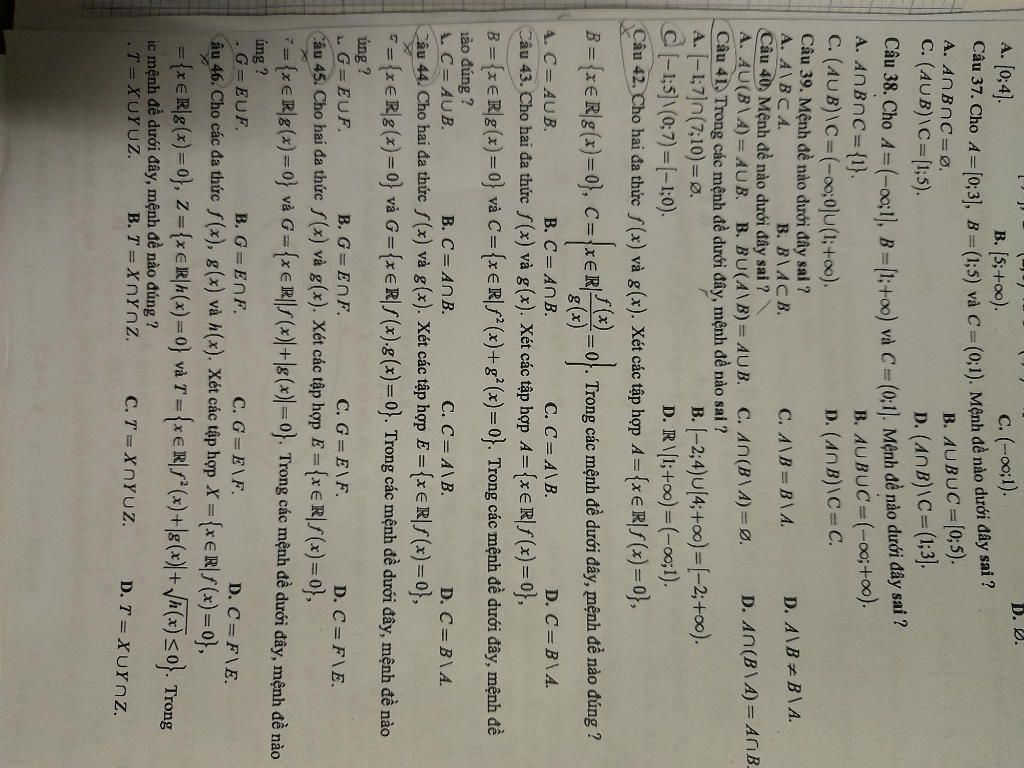 A. [0;4]. B. [5;+∞). C. (−∞;1). D. ∅.
Câu 37. Cho A = [0;3], B = (1;5) và C = (0;1). Mệnh đề nào dưới đây sai ?
A. A∩B∩C = ∅. B. A∪B∪C = [0;5).
C. (A∪B)\C = [1;5). D. (A∩B)\C = (1;3].
Câu 38. Cho A = (−∞;1], B = [1;+∞) và C = (0;1]. Mệnh đề nào dưới đây sai ?
A. A∩B∩C = {1}. B. A∪B∪C = (−∞;+∞).
C. (A∪B)\C = (−∞;0]∪(1;+∞). D. (A∩B)\C = C.
Câu 39. Mệnh đề nào dưới đây sai ?
A. A\B ⊂ A. B. B\A ⊂ B. C. A\B = B\A. D. A\B ≠ B\A.
Câu 40. Mệnh đề nào dưới đây sai ?
A. A∪(B\A) = A∪B. B. B∪(A\B) = A∪B. C. A∩(B\A) = ∅. D. A∩(B\A) = A∩B.
Câu 41. Trong các mệnh đề dưới đây, mệnh đề nào sai ?
A. [−1;7]∩(7;10) = ∅. B. [−2;4)∪[4;+∞) = [−2;+∞).
C. [−1;5]\(0;7) = [−1;0). D. ℝ\[1;+∞) = (−∞;1).
Câu 42. Cho hai đa thức f(x) và g(x). Xét các tập hợp A = {x∈ℝ|f(x) = 0},
B = {x∈ℝ|g(x) = 0}, C = {x∈ℝ|f(x)/g(x) = 0}. Trong các mệnh đề dưới đây, mệnh đề nào đúng ?
A. C = A∪B. B. C = A∩B. C. C = A\B. D. C = B\A.
Câu 43. Cho hai đa thức f(x) và g(x). Xét các tập hợp A = {x∈ℝ|f(x) = 0},
B = {x∈ℝ|g(x) = 0} và C = {x∈ℝ|f²(x)+g²(x) = 0}. Trong các mệnh đề dưới đây, mệnh đề
nào đúng ?
A. C = A∪B. B. C = A∩B. C. C = A\B. D. C = B\A.
Câu 44. Cho hai đa thức f(x) và g(x). Xét các tập hợp E = {x∈ℝ|f(x) = 0},
= {x∈ℝ|g(x) = 0} và G = {x∈ℝ|f(x).g(x) = 0}. Trong các mệnh đề dưới đây, mệnh đề nào
úng ?
. G = E∪F. B. G = E∩F. C. G = E\F. D. C = F\E.
âu 45. Cho hai đa thức f(x) và g(x). Xét các tập hợp E = {x∈ℝ|f(x) = 0},
= {x∈ℝ|g(x) = 0} và G = {x∈ℝ||f(x)|+|g(x)| = 0}. Trong các mệnh đề dưới đây, mệnh đề nào
úng ?
. G = E∪F. B. G = E∩F. C. G = E\F. D. C = F\E.
âu 46. Cho các đa thức f(x), g(x) và h(x). Xét các tập hợp X = {x∈ℝ|f(x) = 0},
= {x∈ℝ|g(x) = 0}, Z = {x∈ℝ|h(x) = 0} và T = {x∈ℝ|f²(x)+|g(x)|+√h(x) ≤ 0}. Trong
mệnh đề dưới đây, mệnh đề nào đúng ?
. T = X∪Y∪Z. B. T = X∩Y∩Z. C. T = X∩Y∪Z. D. T = X∪Y∩Z.